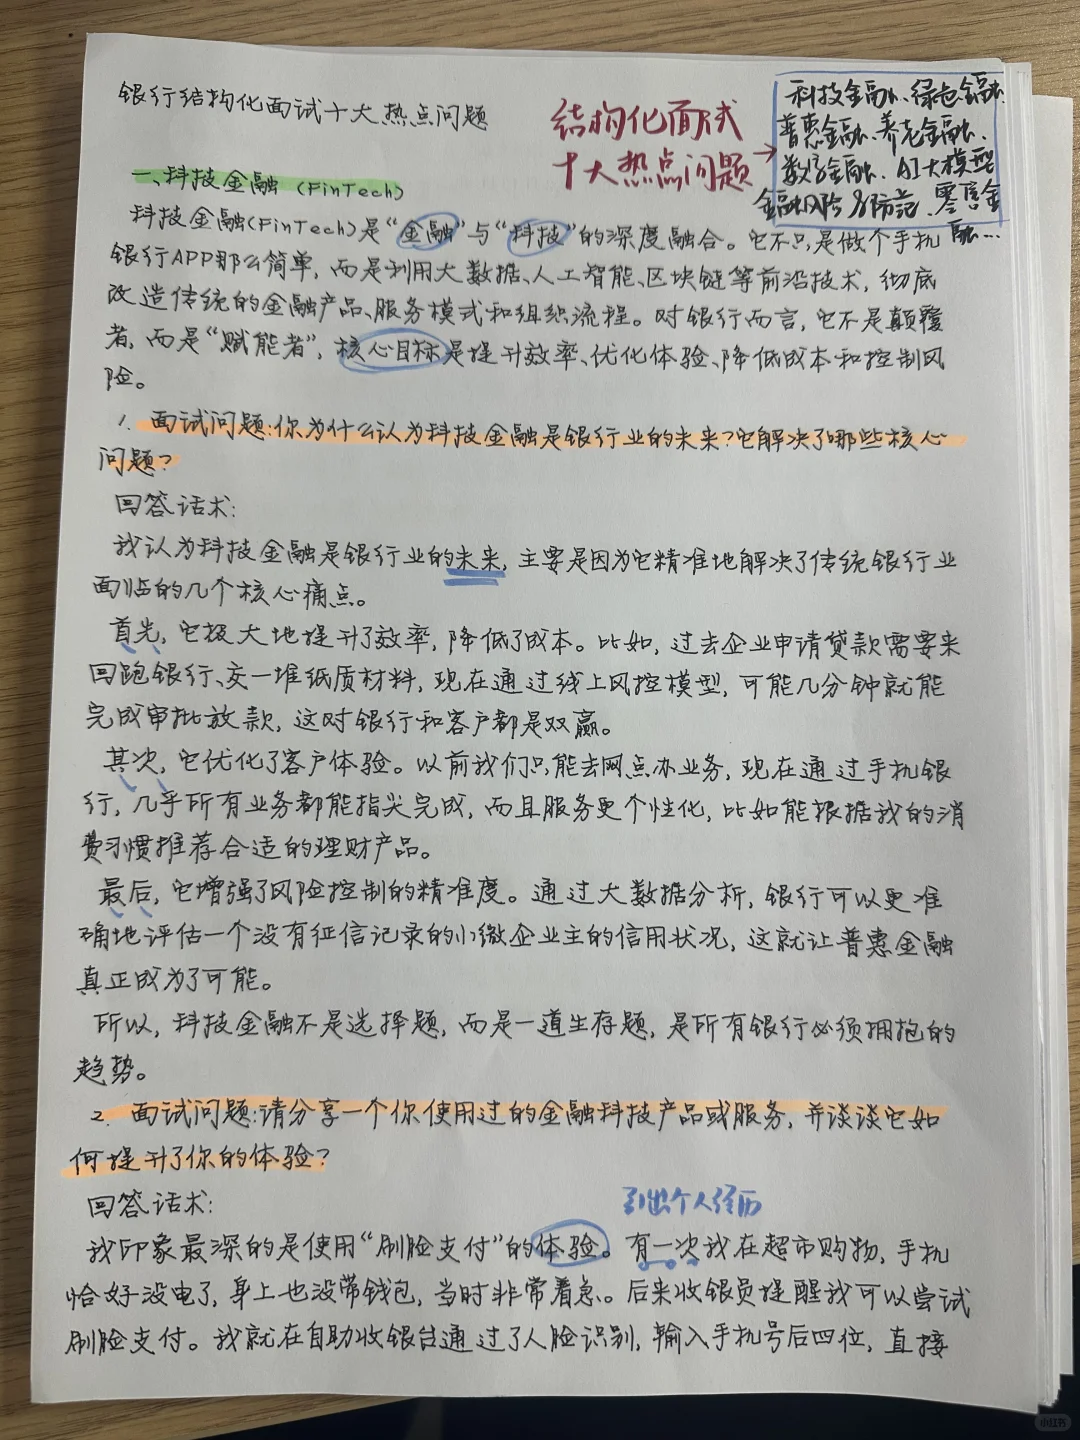 银行结构化面试十大热点问题
结构化面试
十大热点问题
科技金融、绿色金融、
普惠金融、养老金融、
数字金融、AI大模型
金融风险与防范、零售金
融…
一、科技金融（FinTech）
科技金融（FinTech）是“金融”与“科技”的深度融合。它不只是做个手机
银行APP那么简单，而是利用大数据、人工智能、区块链等前沿技术，彻底
改造传统的金融产品、服务模式和组织流程。对银行而言，它不是颠覆
者，而是“赋能者”，核心目标是提升效率、优化体验、降低成本和控制风
险。
1. 面试问题：你为什么认为科技金融是银行业的未来？它解决了哪些核心
问题？
回答话术：
我认为科技金融是银行业的未来，主要是因为它精准地解决了传统银行业
面临的几个核心痛点。
首先，它极大地提升了效率，降低了成本。比如，过去企业申请贷款需要来
回跑银行、交一堆纸质材料，现在通过线上风控模型，可能几分钟就能
完成审批放款，这对银行和客户都是双赢。
其次，它优化了客户体验。以前我们只能去网点办业务，现在通过手机银
行，几乎所有业务都能指尖完成，而且服务更个性化，比如能根据我的消
费习惯推荐合适的理财产品。
最后，它增强了风险控制的精准度。通过大数据分析，银行可以更准
确地评估一个没有征信记录的小微企业主的信用状况，这就让普惠金融
真正成为了可能。
所以，科技金融不是选择题，而是一道生存题，是所有银行必须拥抱的
趋势。
2. 面试问题：请分享一个你使用过的金融科技产品或服务，并谈谈它如
何提升了你的体验？
回答话术：
引出个人经历
我印象最深的是使用“刷脸支付”的体验。有一次我在超市购物，手机
恰好没电了，身上也没带钱包，当时非常着急。后来收银员提醒我可以尝试
刷脸支付。我就在自助收银台通过了人脸识别，输入手机号后四位，直接
小红书